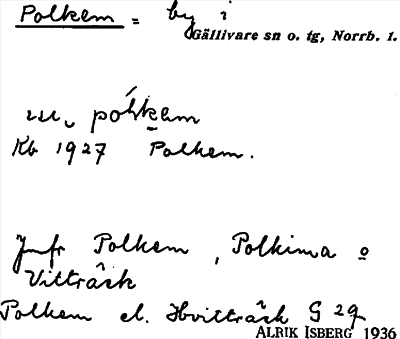 Polkem = by i
Gällivare sn o. tg, Norrb. l.
uu, pólkem
Kb 1927 Polkem.
Jmfr Polkem, Polkima o
Vitträsk
Polkem el. Hvitträsk G 29
ALRIK ISBERG 1936